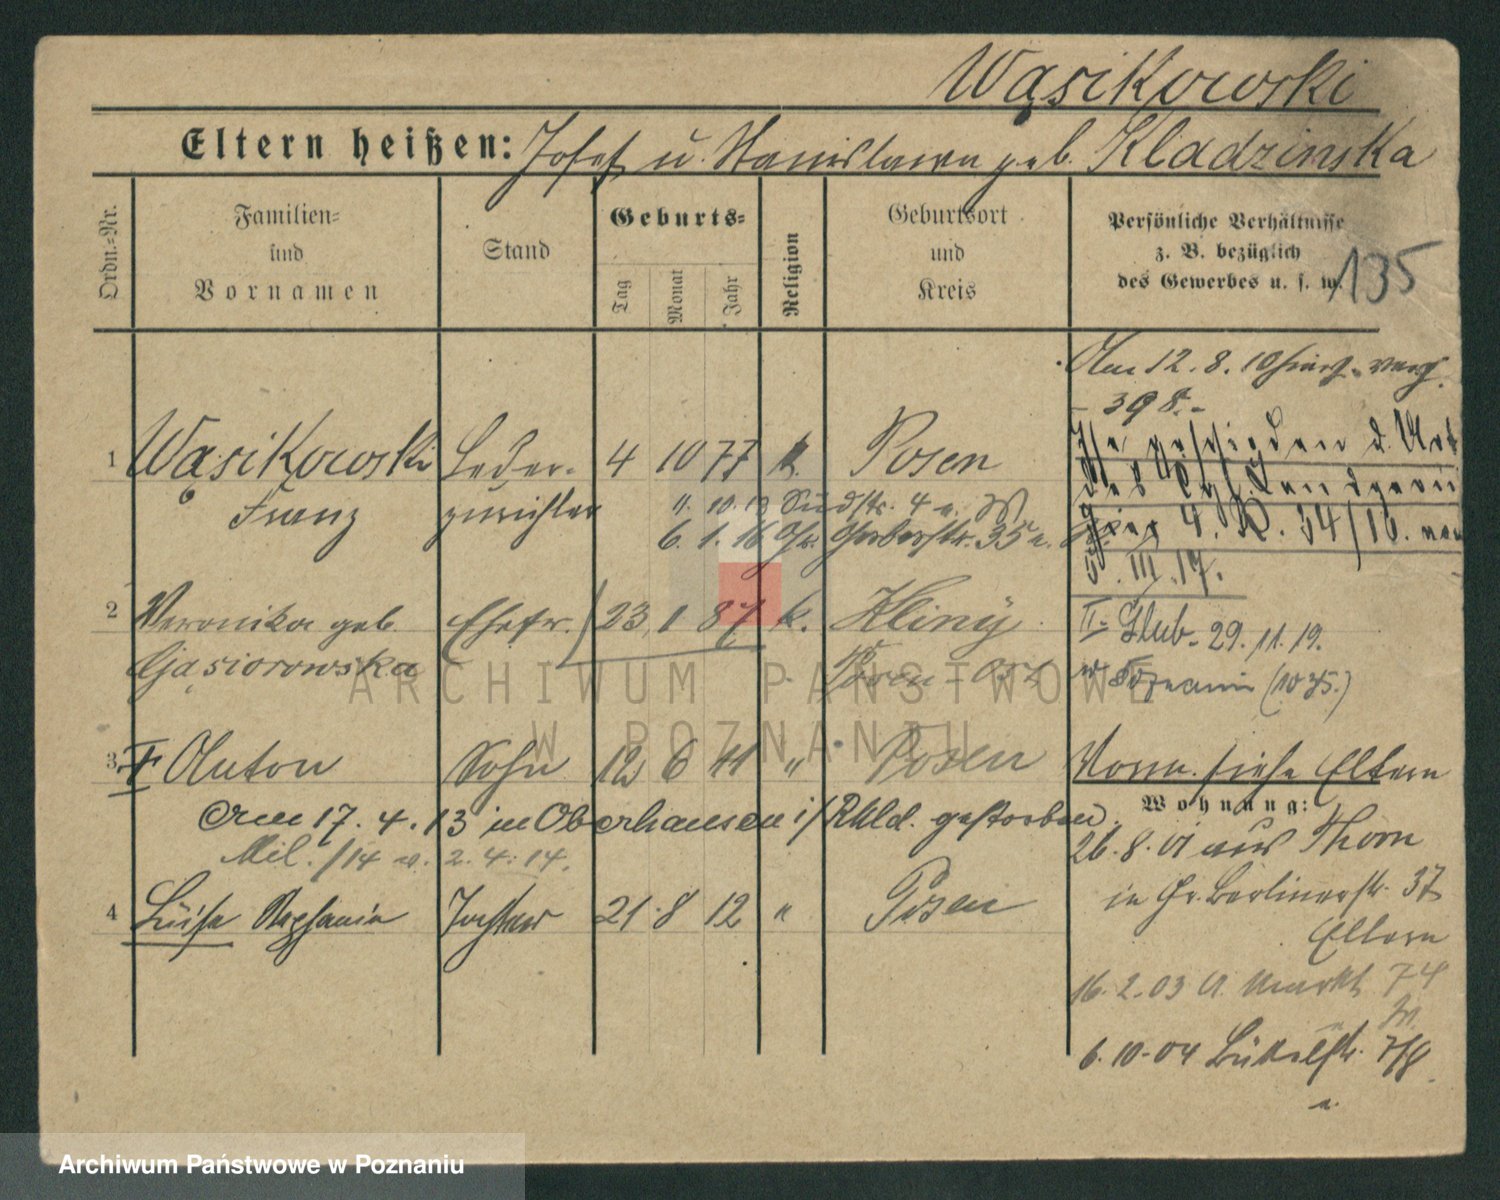 Wąsikowski
Eltern heißen: Josef u. Stanislawa geb. Kladzinska
Ordn.-Nr.
Familien- und Vornamen
Stand
Geburts-
Tag Monat Jahr
Religion
Geburtsort und Kreis
Persönliche Verhältnisse
z. B. bezüglich
des Gewerbes u. s. w.
135
Am 12. 8. 10
- 398. -
1 Wąsikowski Leder- 4 10 77 k. Posen
Franz zurichter
11. 10. 13 Südstr. 4
6. 1. 16 Gr. Gerberstr. 35
geschieden d. Urt.
des Kgl. Landgerichts
hier 4. R. 54/16. vom
III. 17.
2 Veronika geb. Ehefr. 23 1 87 k. Kliny
Gąsiorowska Posen-Ost
II- 29. 11. 19.
w Poznaniu
3 Anton Sohn 12 6 11 " Posen
Am 17. 4. 13 in Oberhausen i/Rhld. gestorben.
Mil. /14 v. 2. 4. 14.
siehe Eltern
Wohnung:
26. 8. 01 aus Thorn
in Gr. Berlinerstr. 37
Eltern
4 Luise Stephania Tochter 21 8 12 " Posen
16. 2. 03 A. Markt 74
6. 10. 04 7/8
ARCHIWUM PAŃSTWOWE
W POZNANIU
Archiwum Państwowe w Poznaniu